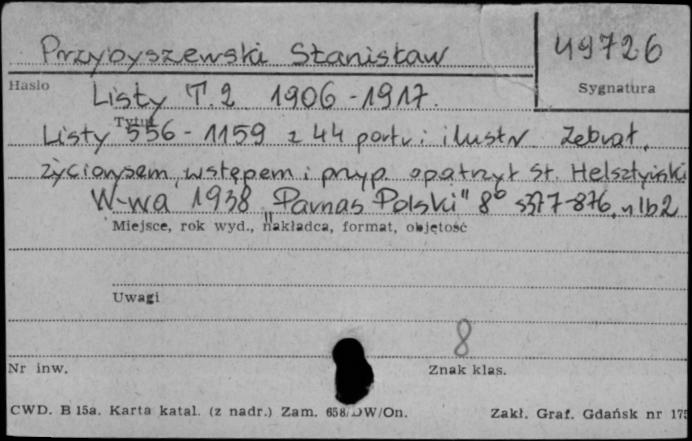 Przybyszewski Stanisław 49726
Hasło Sygnatura
Listy T.2 1906-1917.
Tytuł
Listy 556-1159 z 44 portr. i ilustr Zebrał,
życiorysem, wstępem i przyp. opatrzył St. Helsztyński
W-wa 1938 "Parnas Polski" 8° s377-876, nlb2
Miejsce, rok wyd., nakładca, format, objętość
Uwagi
8
Nr inw. Znak klas.
CWD. B 15a. Karta katal. (z nadr.) Zam. 658/DW/On. Zakł. Graf. Gdańsk nr 175